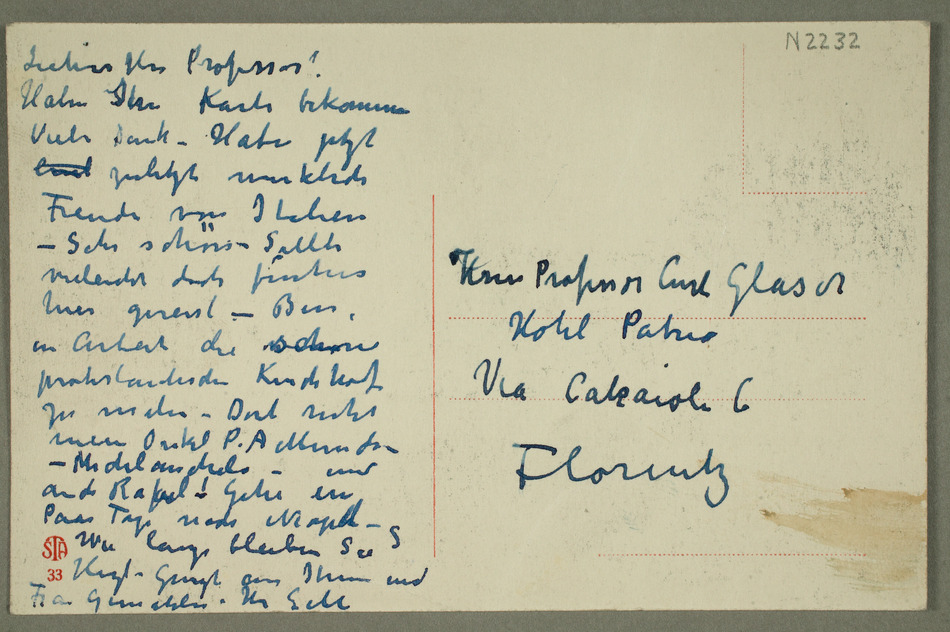 N2232
Lieber Herr Professor!
Habe Ihre Karte bekommen
Viele Dank – Habe jetzt
zuletzt wirklich
Freude von Italien
– Sehr schön – Sollte
vieleicht doch früher
hier gereist – Bin,
in Arbeit die schöne
protestantische Kirchhof
zu malen – Dort ruht
mein Onkel P. A Munch
– Michelangelo – und
auch Rafael! Gehe ein
Paar Tage nach Neapel –
Wie lange bleiben Sie
Herzl. Grüsse an Ihnen und
Frau Gemahlin – Ihr
STA
33
Herrn Professor Curt Glaser
Hotel Patria
Via Calzaioli 6
Florentz